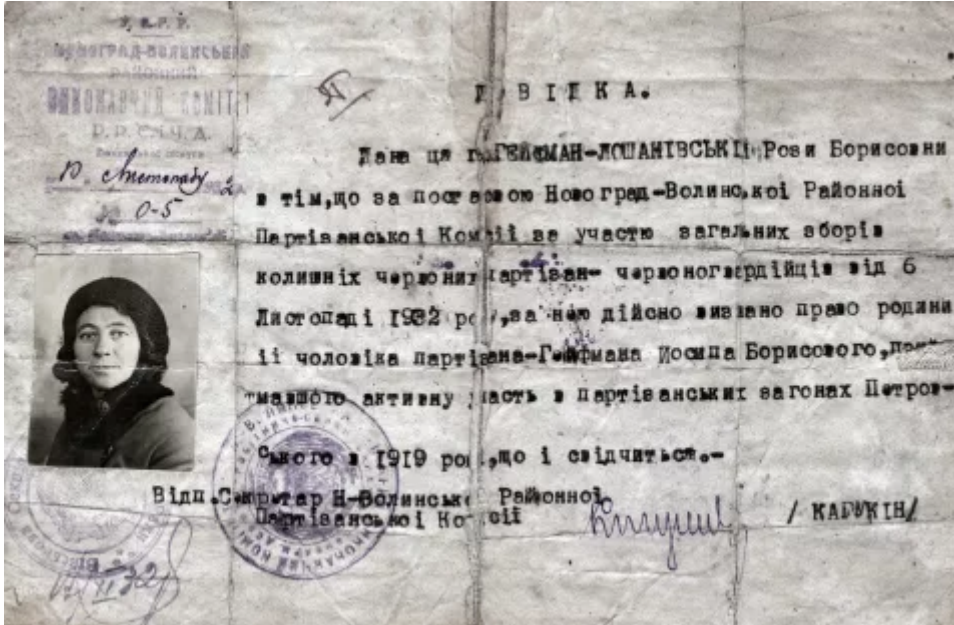 У. С. Р. Р.
НОВОГРАД-ВОЛИНСЬКИЙ
РАЙОННИЙ
ВИКОНАВЧИЙ КОМІТЕТ
Р. Р. С. Ч. Д.
10 Листопаду 1932
№ 0-5
ДОВІДКА.
Дана ця гр. ГЕЙФМАН-ЛОШАНІВСЬКІЙ Рози Борисовни
в тім,що за постановою Новоград-Волинської Районної
Партіванської Комсії за участю загальних зборів
колишніх червоних партіван- червоногвардійців від 6
Листопаді 1932 року,за нею дійсно визвано право родини
її чоловіка партівана-Гейфмана Йосипа Борисового,
тмавшого активну участь в партіванських загонах Петров-
ського в 1919 році,що і свідчиться.-
Відп.Секретар Н-Волинської Районної
Партіванської Комсії
/ КАБУКІН/